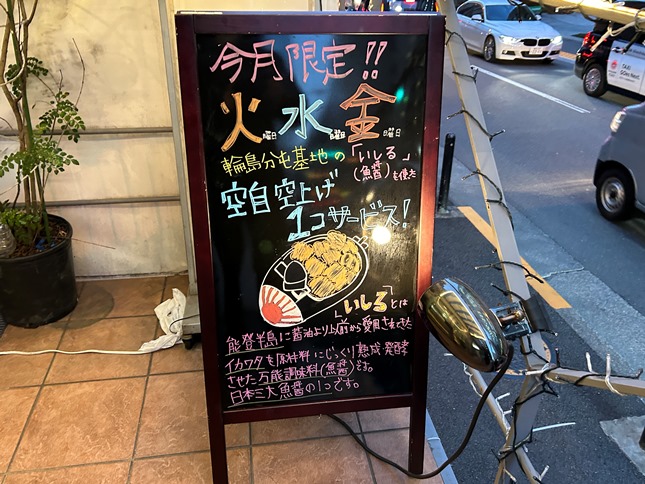 今月限定!!
火曜日 水曜日 金曜日
輪島分屯基地の「いしる」
(魚醤)を使った
空自空上げ
1コサービス!
「いしる」とは
能登半島に醤油より以前から愛用されてきた
イカワタを原材料にじっくり熟成・発酵
させた万能調味料(魚醤)です。
日本三大魚醤の1つです。